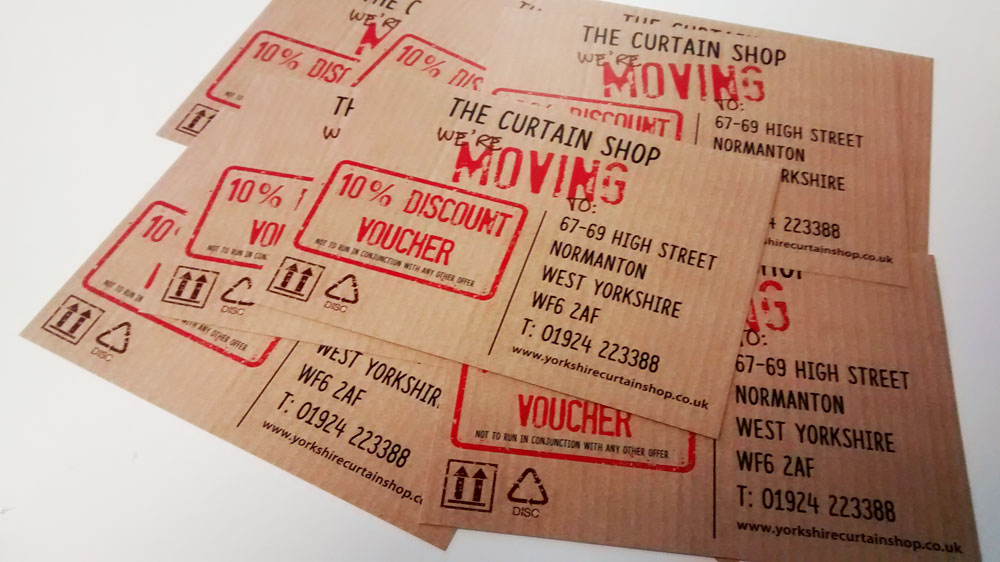 THE C
WE'RE
M
10% DISC
10% DIS
THE CURTAIN
THE CURTAIN SHOP
WE'RE
MOVING
TO:
DISCOUNT
67-69 HIGH STREET
NORMANTON
RKSHIRE
4 223388
shirecurtainshop.co.uk
TH
W
10%
VOU
NOT TO RUN IN CONJ
DISC
THE CURTAIN SHOP
WE'RE
MOVING
TO:
10% DISCOUNT
VOUCHER
NOT TO RUN IN CONJUNCTION WITH ANY OTHER OFFER
DISC
67-69 HIGH STREET
NORMANTON
WEST YORKSHIRE
WF6 2AF
T: 01924 223388
www.yorkshirecurtainshop.co.uk
10%
NOT TO RUN IN
WITH ANY OTHER OFFER
DISC
WEST YORKSHIR
WF6 2AF
T: 01924 223388
www.yorkshirecurtainshop.c
VOUCHER
NOT TO RUN IN CONJUNCTION WITH ANY OTHER OFFER
DISC
G
TO:
67-69 HIGH STREET
NORMANTON
WEST YORKSHIRE
WF6 2AF
T: 01924 223388
www.yorkshirecurtainshop.co.uk